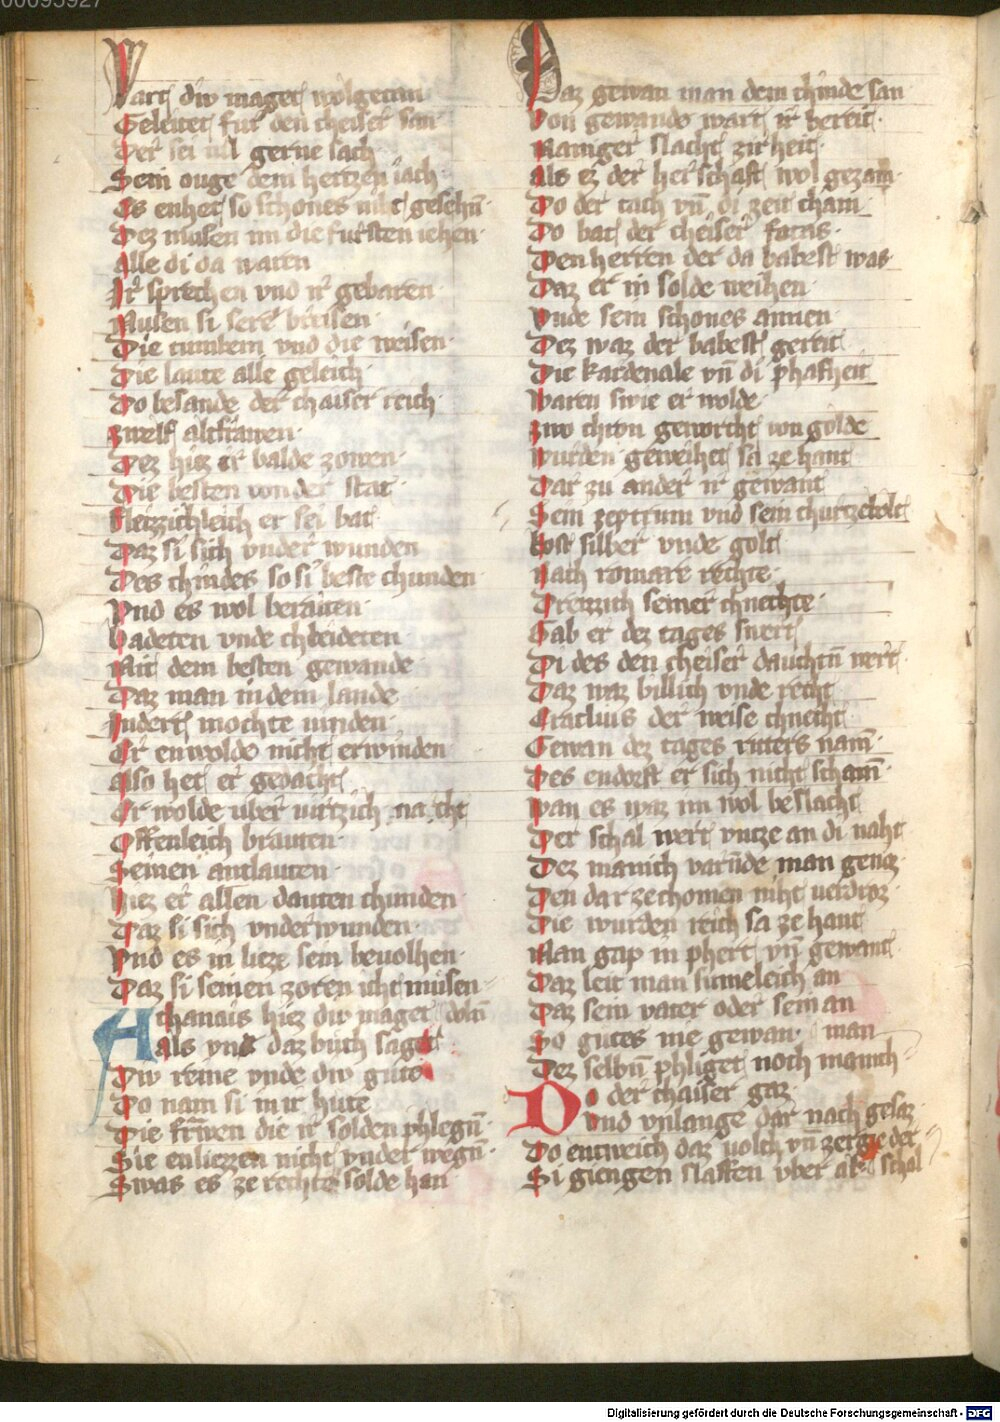 Wart div maget wolgetan
Geleitet fur den cheiser san
Der sei vil gerne sach
Sein ouge dem hertzen iach
Es enhet so schones niht gesehn
Dez musen im die fursten iehen
Alle di da waren
Ir sprechen vnd ir gebaren
Musen si sere breisen
Die tumbem vnd die weisen
Die laute alle geleich
Do besande der chaiser reich
zwelf altfrawen
Dez hiez er balde zowen
Die besten von der stat
fleizzichleich er sei bat
Daz si sich vnder wunden
Des chindes so si beste chunden
Vnd es wol berauten
badeten vnde chleideten
Mit dem besten gewande
Daz man in dem lande
Indert mochte vinden
Er enwolde nicht erwinden
Also het er gedacht
Er wolde uber virtzich nacht
Offenleich brauten
Seinen antlauten
hiez er allen dauten chunden
Daz si sich vnderwunden
Vnd es in lieze sein beuolhen
Daz si seinen zoren iht müsen doln
Athanais hiez div maget
als vns daz buch saget
Div reine vnde div gute
Do nam si in ir hute
Die frawen die ir solden phlegn
Sie enliezzen nicht vnder wegn
Swas es ze rechte solde han
Daz gewan man dem chinde san
Von gewande wart ir bereit
Maniger slacht zirheit
Als ez der herschaft wol gezam
Do der tach vn di zeit cham
Do bat der cheiser focas
Den herren der da babest was
Daz er in solde weihen
Vnde sein schones amien
Dez waz der babest gereit
Die kardenale vn di phafheit
Waren swie er wolde
zwo chron geworcht von golde
Wurden geweihet sa ze hant
Dar zu ander ir gewant
Sein zeptrum vnd sein churtzebolt
kost silber vnde golt
Nach romare rechte
Dreizzich seiner chnechte
Gab er dez tages swert
Di des den cheiser dauchtn wert
Daz waz billich vnde recht
Eraclius der weise chnecht
Gewan dez tages ritters nam
Des endorft er sich nicht scham
wan es waz im wol beslacht
Der schal wert vntze an di naht
Dez manich varnde man genoz
Den dar ze chomen niht uerdroz
Die wurden reich sa ze hant
Man gap in phert vn gewant
Daz leit man sumeleich an
Daz sein vater oder sein an
So gutes nie gewan man
Dez selbn phliget noch manich
Do der chaiser gaz
Vnd vnlange dar nach gesaz
Do entweich daz uolch vn zergie der schal
Si giengen slaffen vber al
00095927
Digitalisierung gefördert durch die Deutsche Forschungsgemeinschaft - DFG